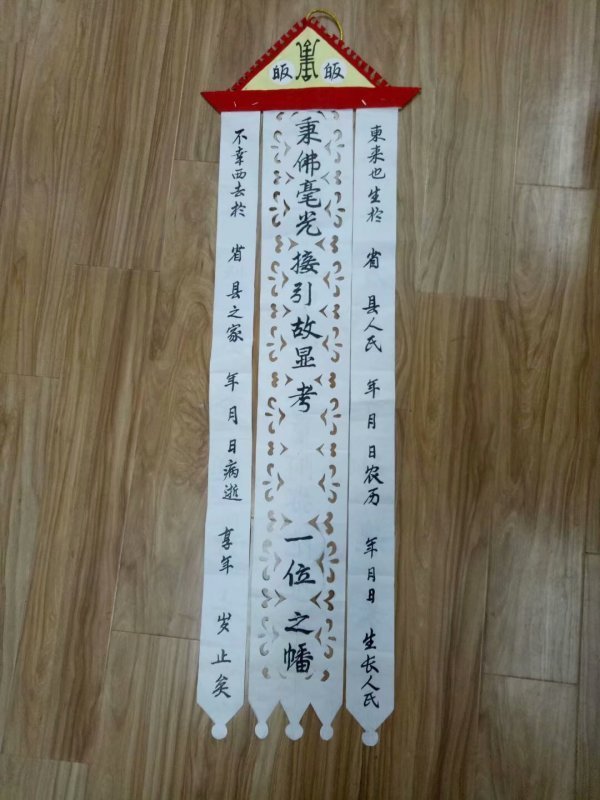 皈 皈
東来也生於 省 县人民 年 月 日农历 年 月 日 生长人民
秉佛毫光接引故显考 一位之幡
不幸西去於 省 县之家 年 月 日病逝 享年 岁止矣